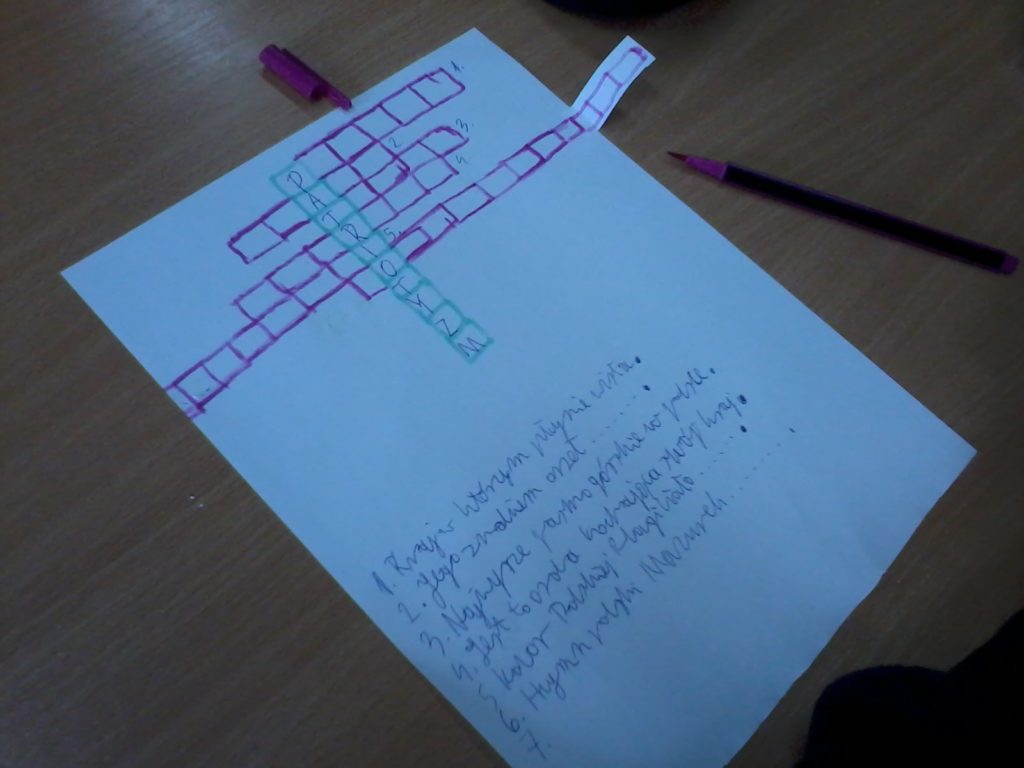 1.
2
3.
4
5.
PATRIOTYZM
1. Kraj w którym płynie wisła.
2. Jego znakiem orzeł ........
3. Najwyższe pasmo górskie w polsce.
4. Jest to osoba kochająca swój kraj.
5 Kolor Polskiej flagi biało .....
6. Hymn polski Mazurek ........
7.